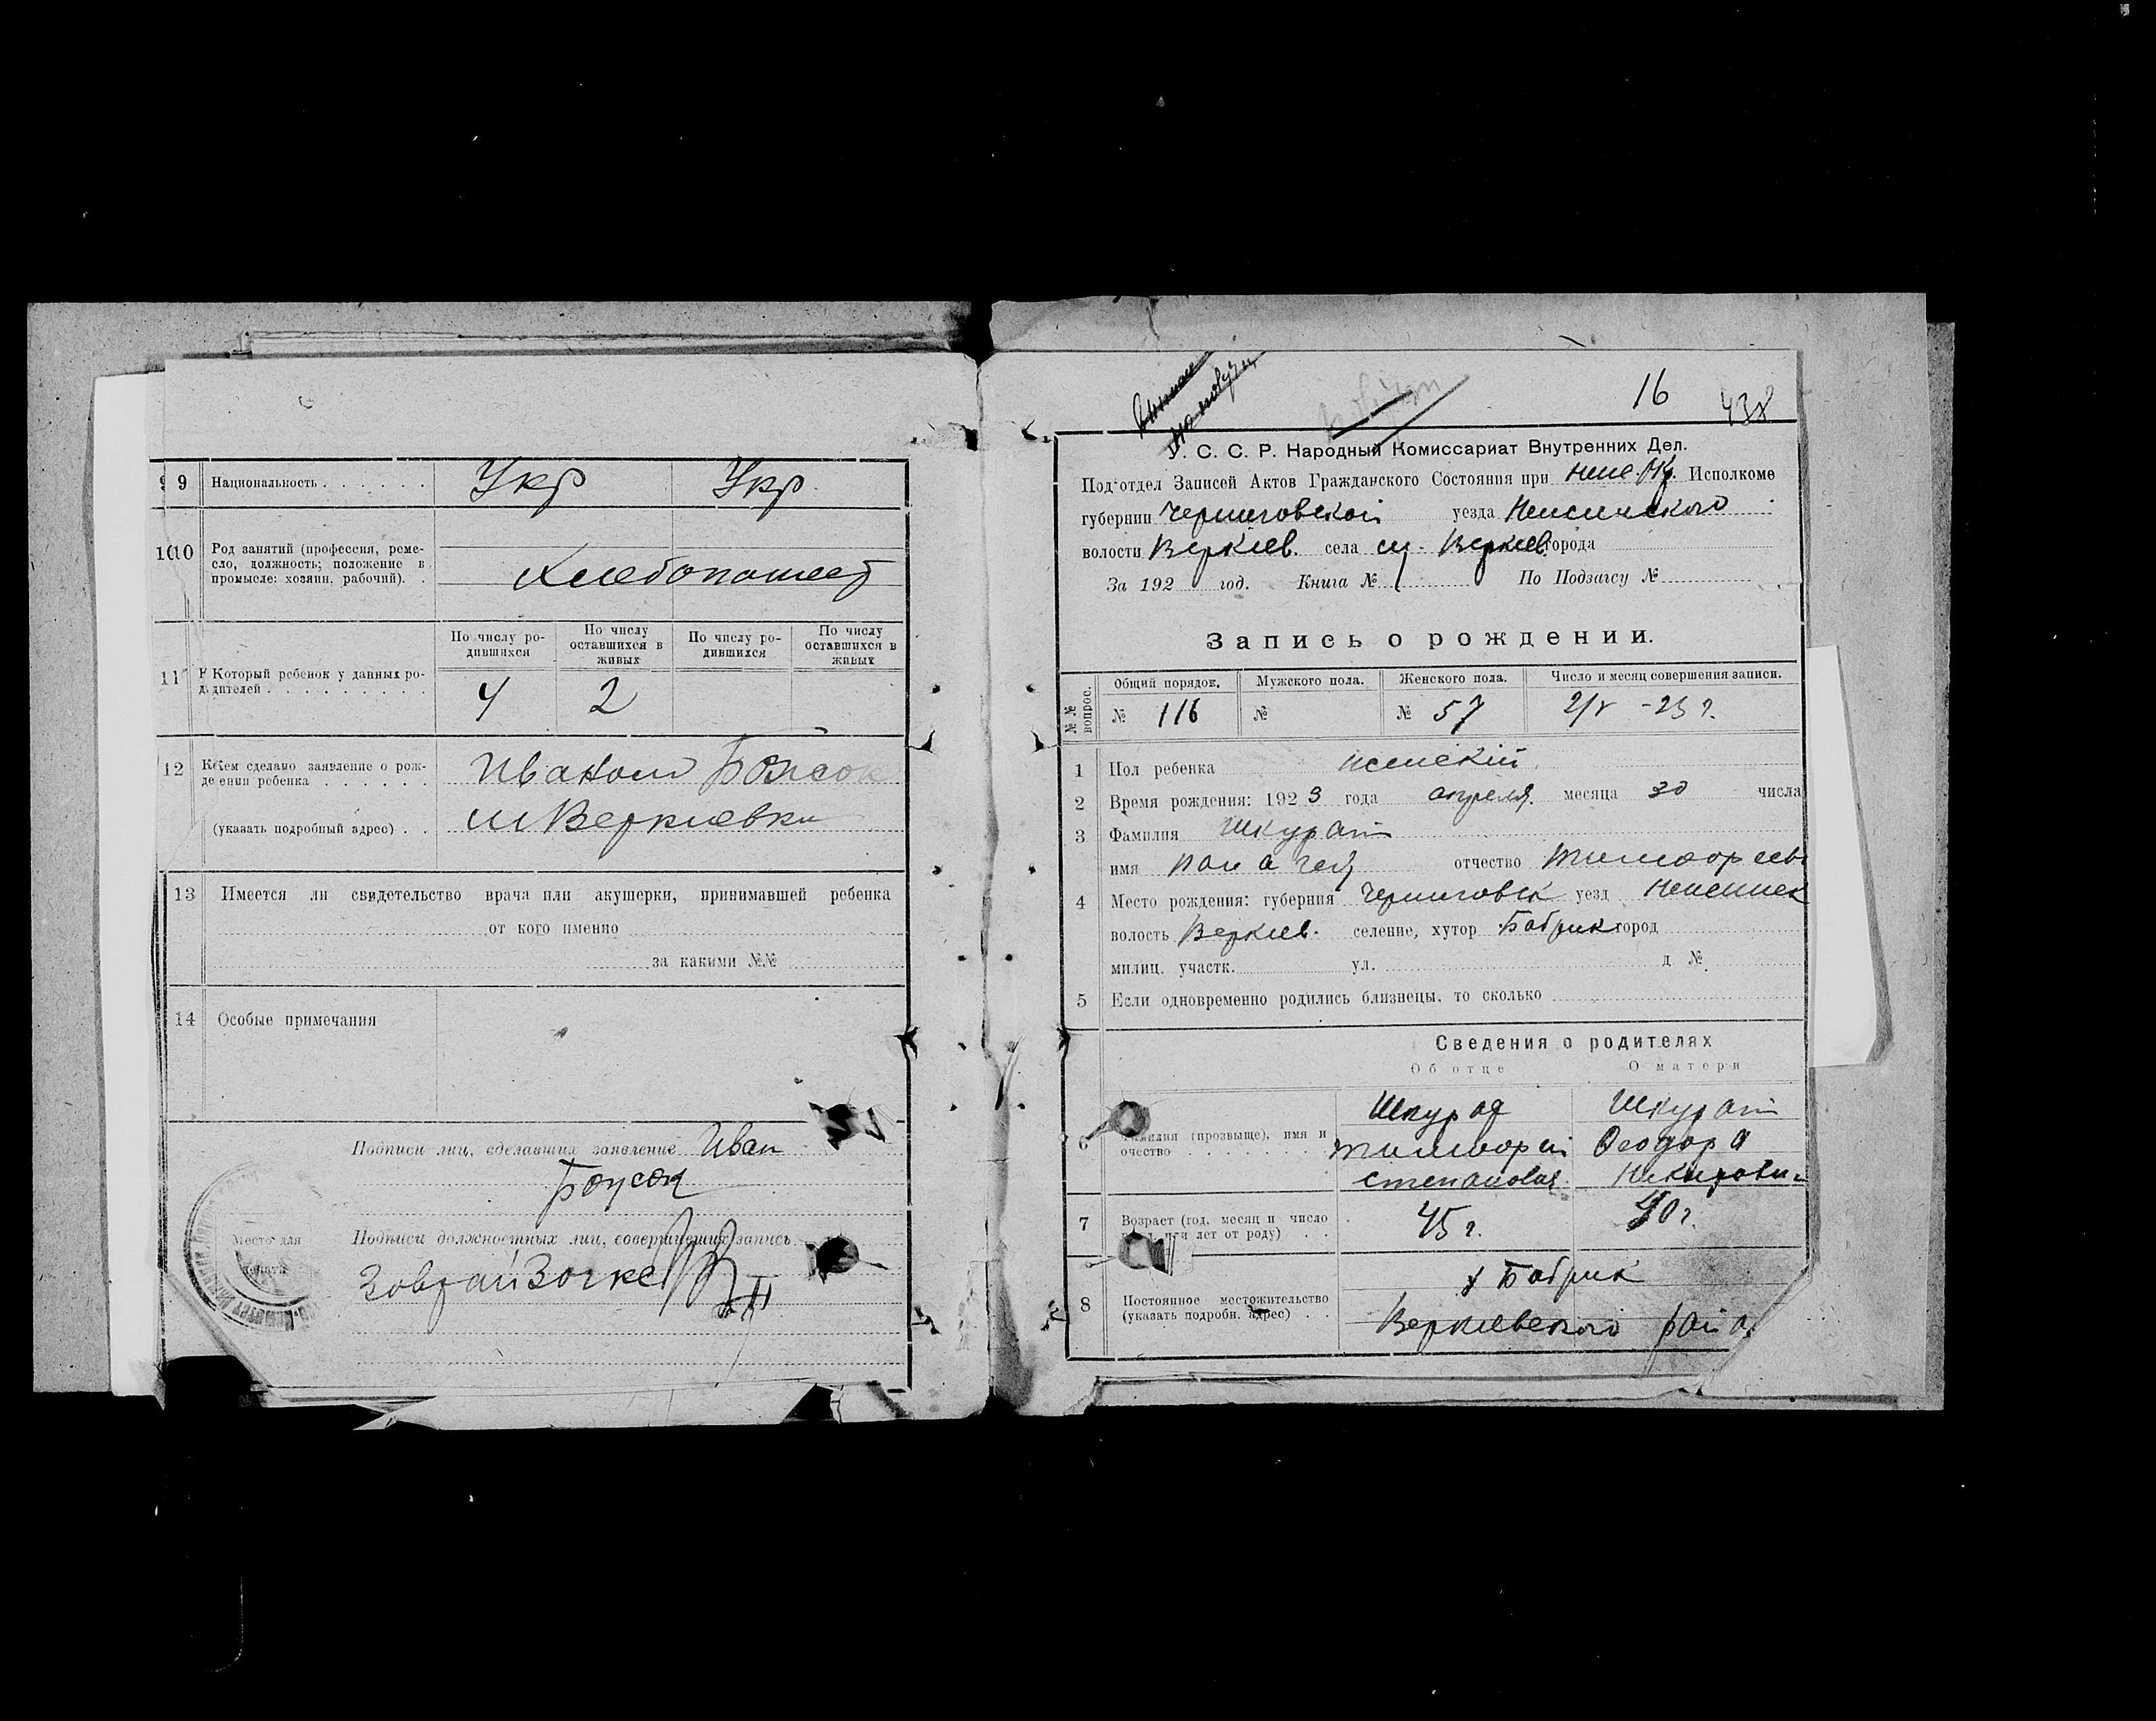 9 Национальность Укр Укр.
10 Род занятий (профессия, реме-
сло, должность; положение в
промысле: хозяин, рабочий).
Хлебопашест
По числу ро-
дившихся
По числу
оставшихся в
живых
По числу ро-
дившихся
По числу
оставшихся в
живых
11 Который ребенок у данных ро-
дителей
4 2
12 Кем сделано заявление о рож-
дении ребенка
Иваном
(указать подробный адрес)
м Веркиевки
13 Имеется ли свидетельство врача или акушерки, принимавшей ребенка
от кого именно
за какими №№
14 Особые примечания
Подписи лиц, сделавших заявление Иван
Место для
печати
Подписи должностных лиц, совершивших запись
16 438
У. С. С. Р. Народный Комиссариат Внутренних Дел.
Под'отдел Записей Актов Гражданского Состояния при Исполкоме
губернии Черниговской уезда Неженского
волости Веркиев. села м. Веркиев города
За 192 год. Книга № По Подзагсу №
Запись о рождении.
№№ вопрос.
Общий порядок. Мужского пола. Женского пола. Число и месяц совершения записи.
№ 116 № № 57 2/V -23 г.
1 Пол ребенка женский
2 Время рождения: 1923 года апреля. месяца 30 числа
3 Фамилия Шкурат
имя отчество Тимофеев
4 Место рождения: губерния Черниговск уезд Неженск
волость Веркиев. селение, хутор Бобрик город
милиц. участк. ул. д №
5 Если одновременно родились близнецы, то сколько
Сведения о родителях
Об отце О матери
6 Фамилия (прозвыще), имя и
очество
Шкурат Шкурат
Тимофей Феодора
Степанович
7 Возраст (год, месяц и число
или лет от роду)
45 г. 40 г.
8 Постоянное местожительство
(указать подробн. адрес)
х Бобрик
Веркиевского район